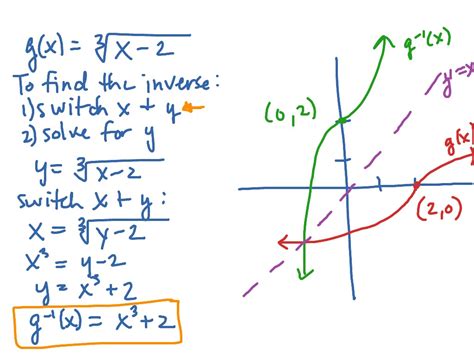 g(x) = ∛x-2
To find the inverse:
1) switch x + y ←
2) solve for y
y = ∛x-2
switch x + y:
x = ∛y-2
x³ = y-2
y = x³+2
g⁻¹(x) = x³+2
g⁻¹(x)
y=x
(0,2)
g(x)
(2,0)